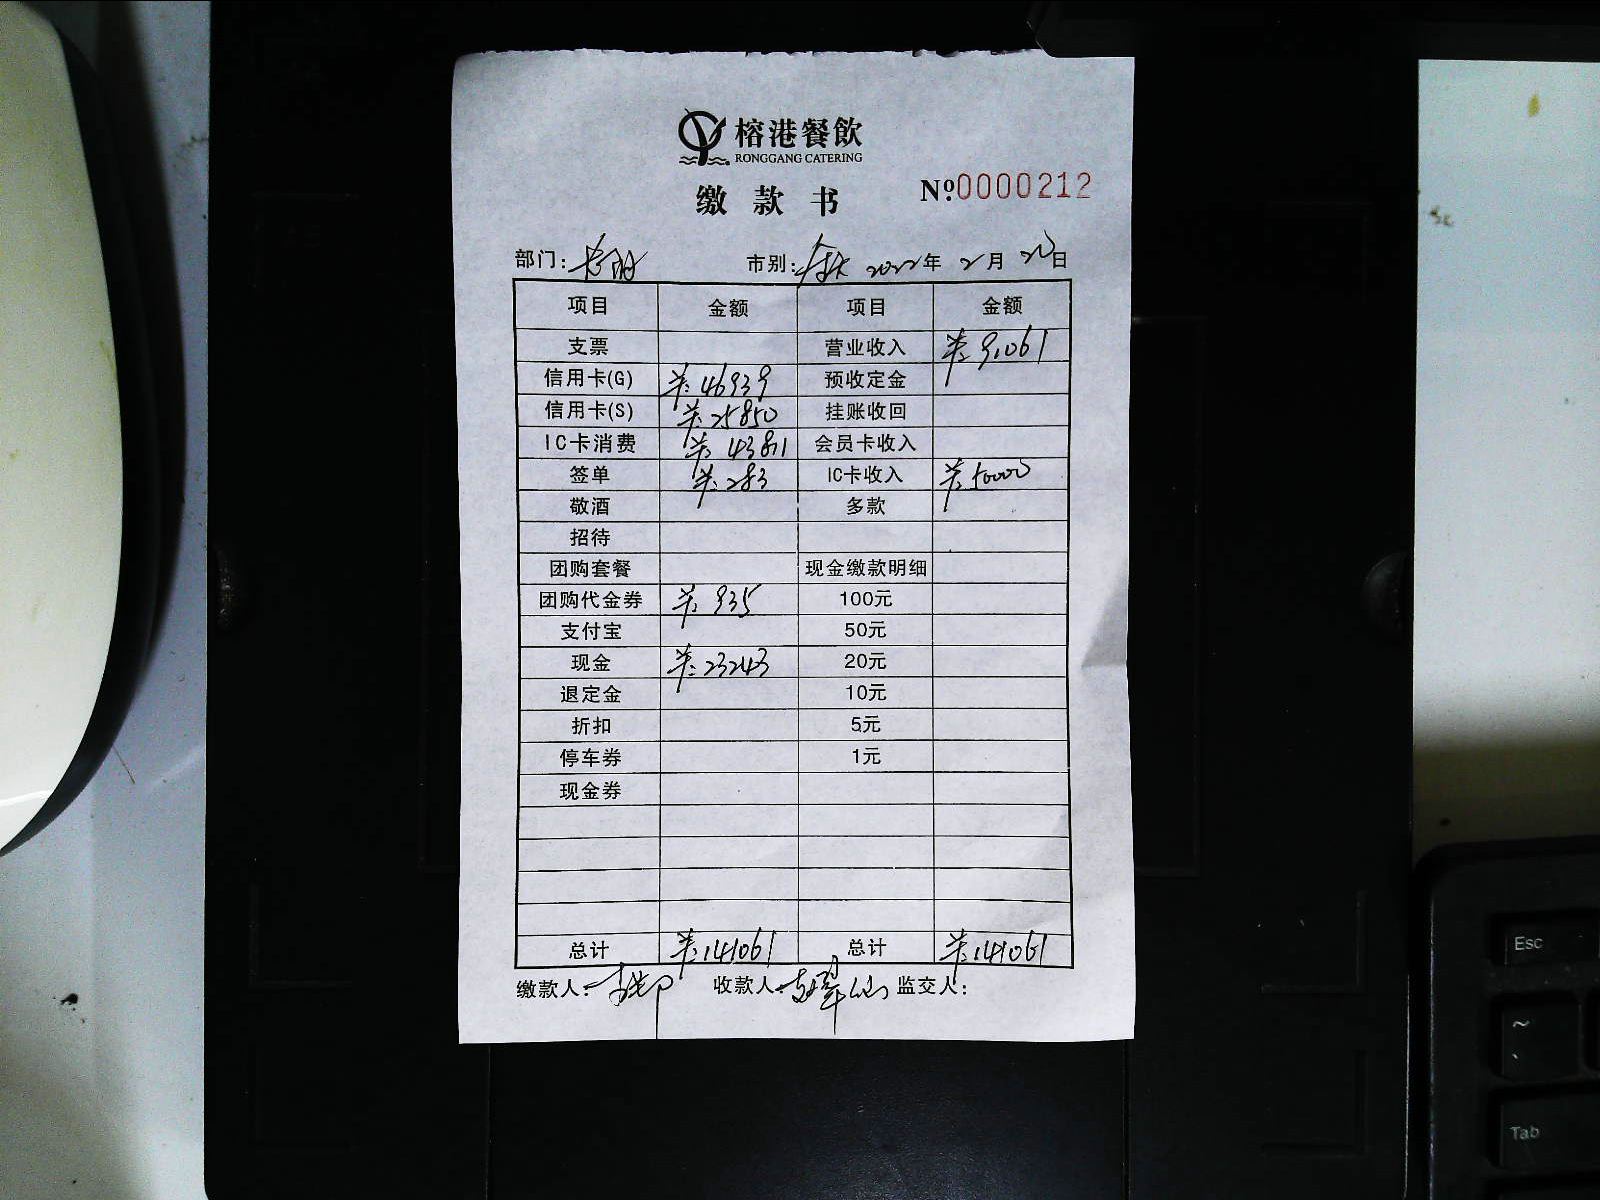 榕港餐飲
RONGGANG CATERING
缴款书 Nº0000212
部门: 市别: 2022年 2月 20日
项目 金额 项目 金额
支票 营业收入 羊:91061
信用卡(G) 羊:46939 预收定金
信用卡(S) 羊:25850 挂账收回
IC卡消费 羊:43811 会员卡收入
签单 羊:283 IC卡收入 羊:50000
敬酒 多款
招待
团购套餐 现金缴款明细
团购代金券 羊:935 100元
支付宝 50元
现金 羊:23243 20元
退定金 10元
折扣 5元
停车券 1元
现金券
总计 羊:141061 总计 羊:141061
缴款人: 收款人: 监交人:
Esc
~
Tab